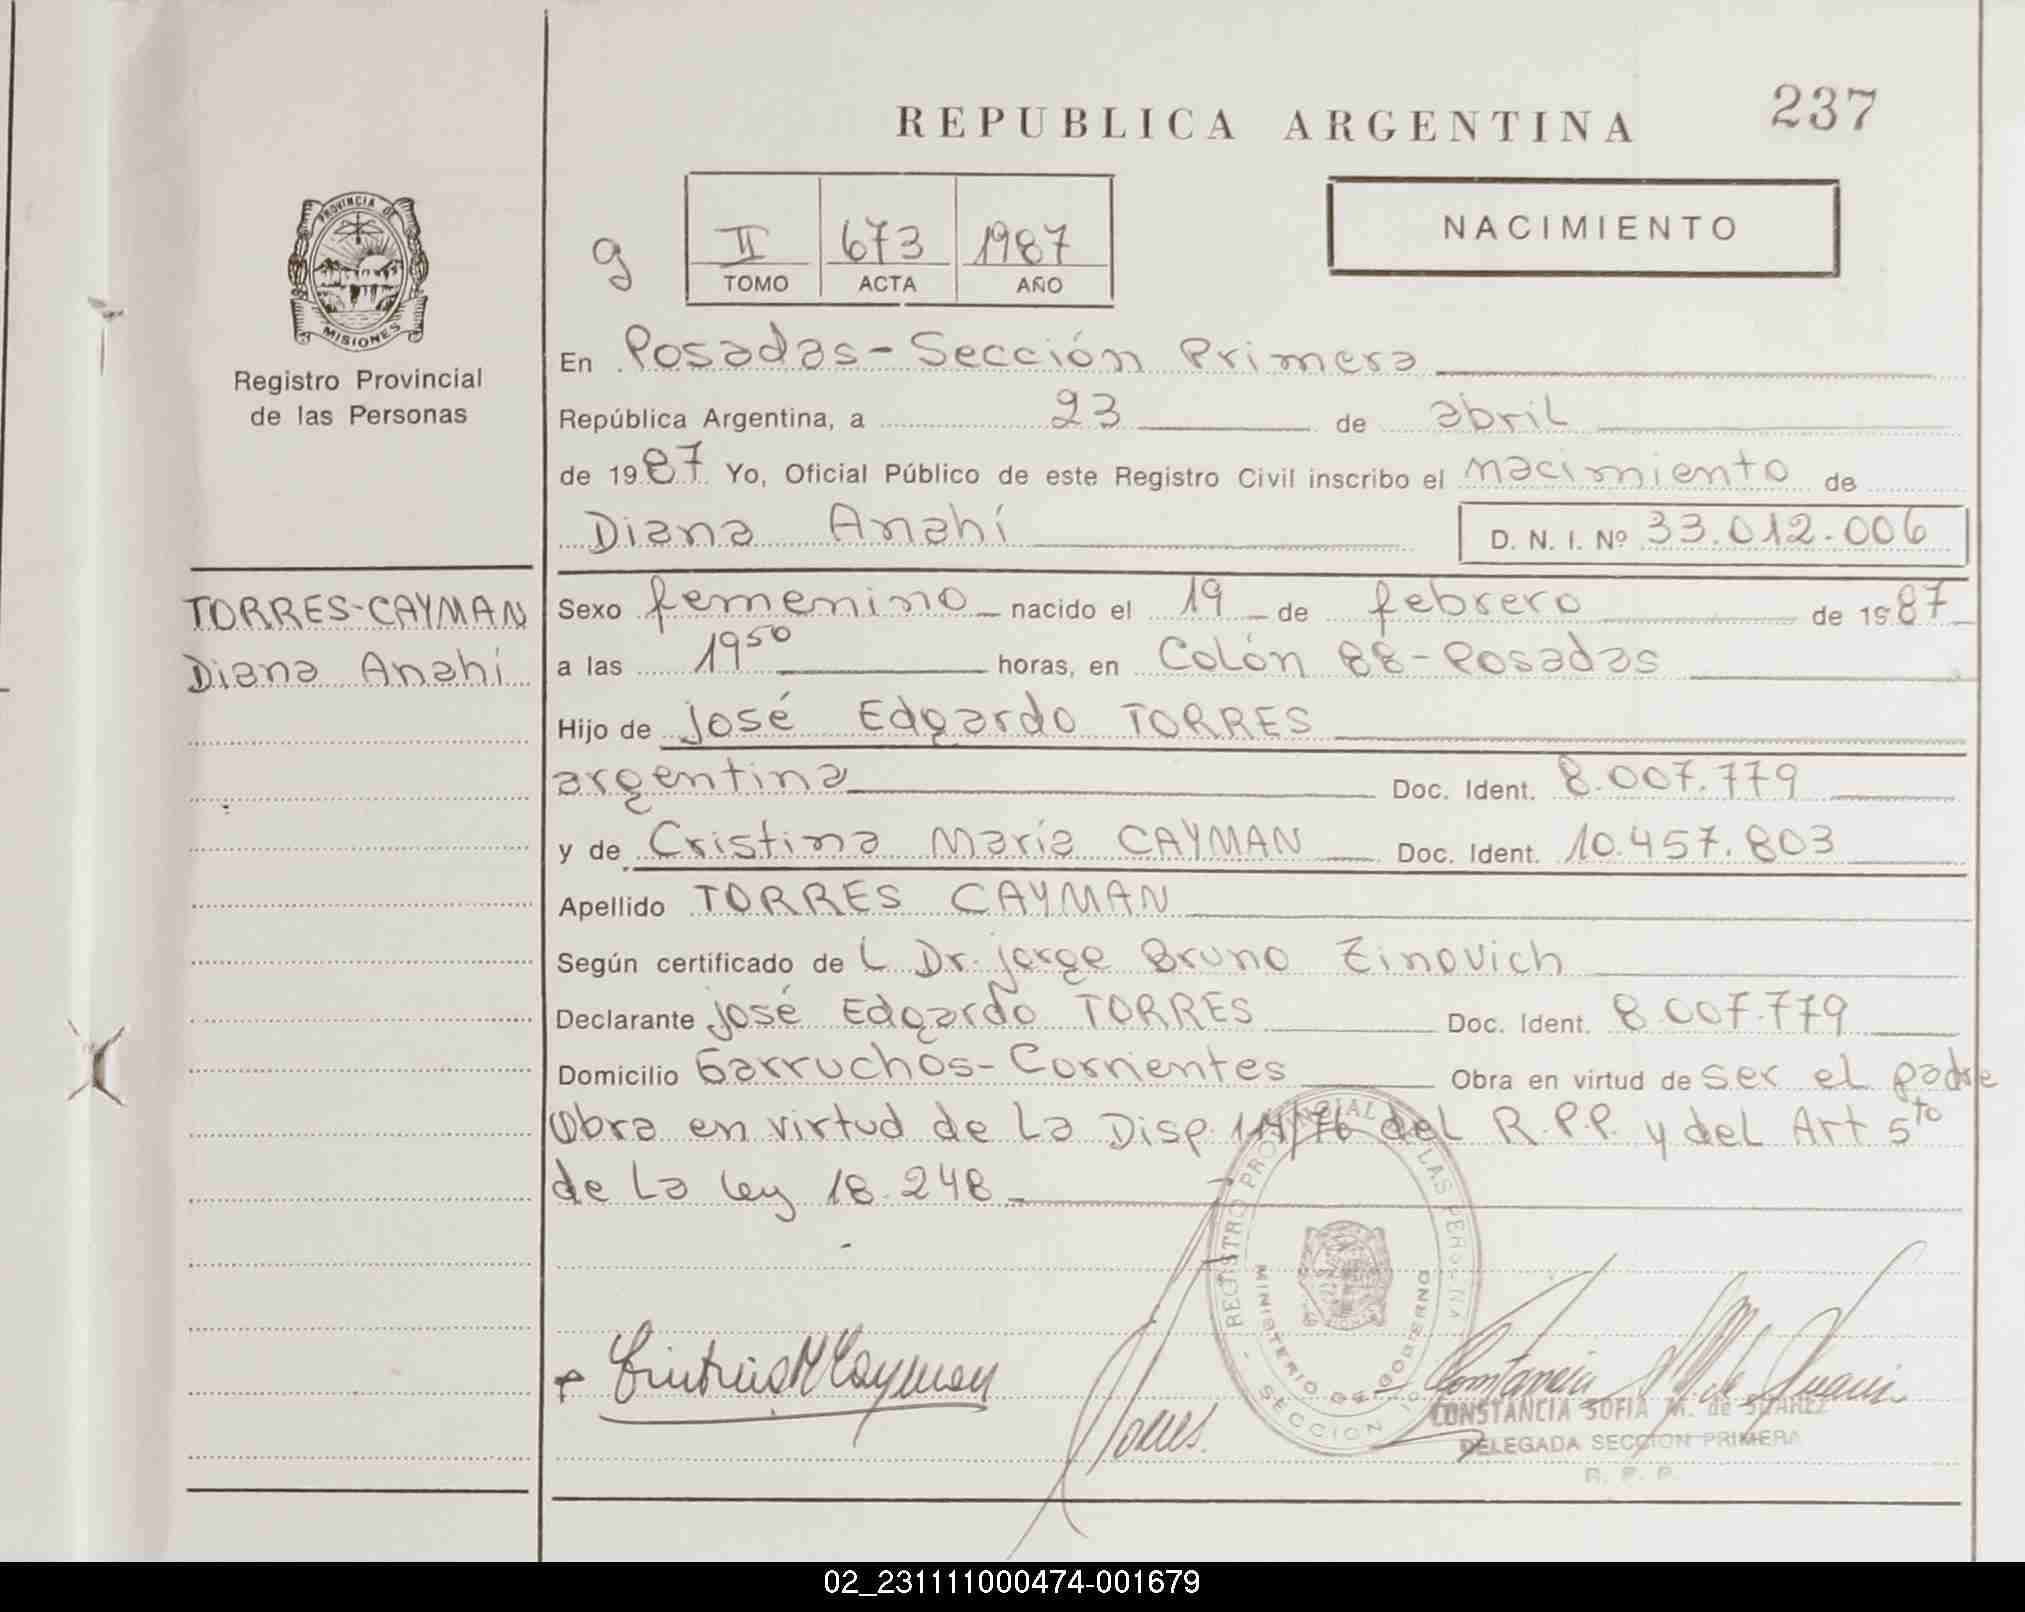 REPUBLICA ARGENTINA
237
PROVINCIA DE
MISIONES
Registro Provincial
de las Personas
g
II 673 1987
TOMO ACTA AÑO
NACIMIENTO
En Posadas - Sección Primera
República Argentina, a 23 de abril
de 1987 Yo, Oficial Público de este Registro Civil inscribo el nacimiento de
Diana Anahí D. N. I. Nº 33.012.006
TORRES-CAYMAN
Diana Anahí
Sexo femenino nacido el 19 de febrero de 1987
a las 19 50 horas, en Colón 88 - Posadas
Hijo de José Edgardo TORRES
argentina Doc. Ident. 8.007.779
y de Cristina María CAYMAN Doc. Ident. 10.457.803
Apellido TORRES CAYMAN
Según certificado de L Dr. Jorge Bruno Zinovich
Declarante José Edgardo TORRES Doc. Ident. 8.007.779
Domicilio Garruchos - Corrientes Obra en virtud de ser el padre
Obra en virtud de La Disp. 14/76 del R.P.P. y del Art 5to
de La Ley 18.248
REGISTRO PROVINCIAL DE LAS PERSONAS
MINISTERIO DE GOBIERNO
- SECCION 1º
Torres
CONSTANCIA SOFIA M. de SUAREZ
DELEGADA SECCION PRIMERA
R. P. P.
02_231111000474-001679